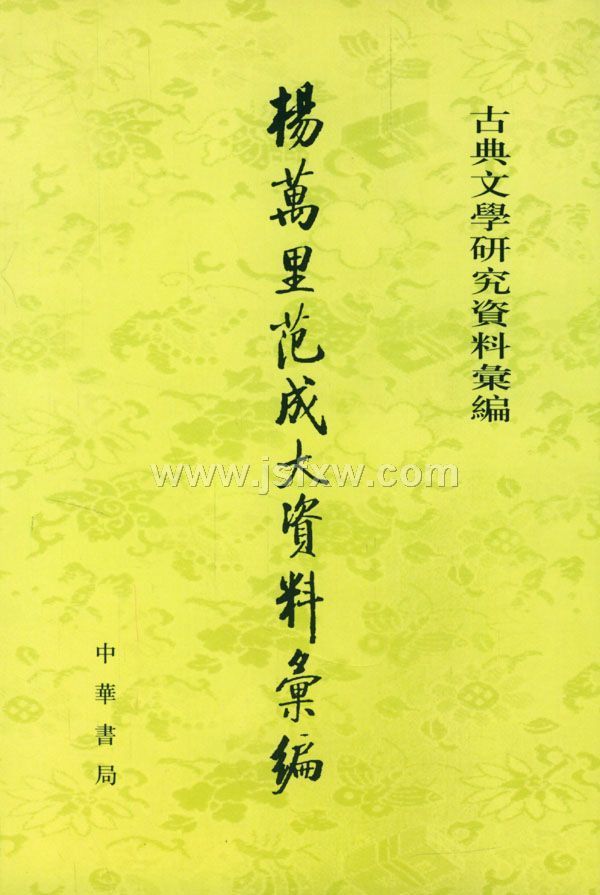 古典文學研究資料彙編
楊萬里范成大資料彙編
中華書局
www.jsfxw.com